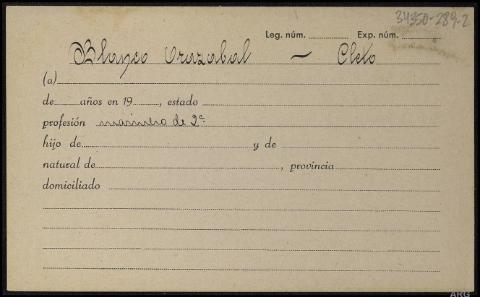 34350-289-2
Leg. núm. Exp. núm.
Blanco Urazabal — Cleto
(a)
de años en 19 , estado
profesión marinero de 2ª
hijo de y de
natural de , provincia
domiciliado
ARG